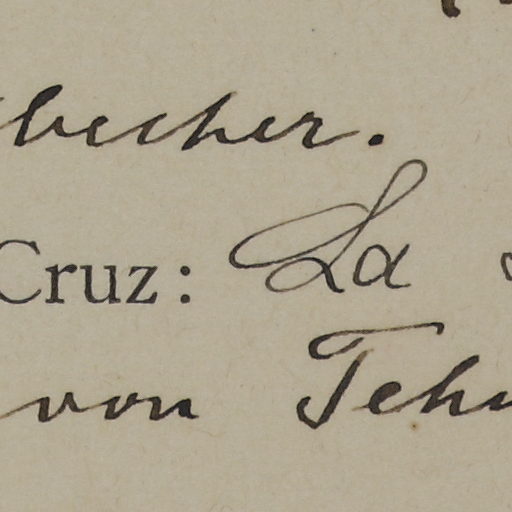 becher.
Cruz: La
von Tehu